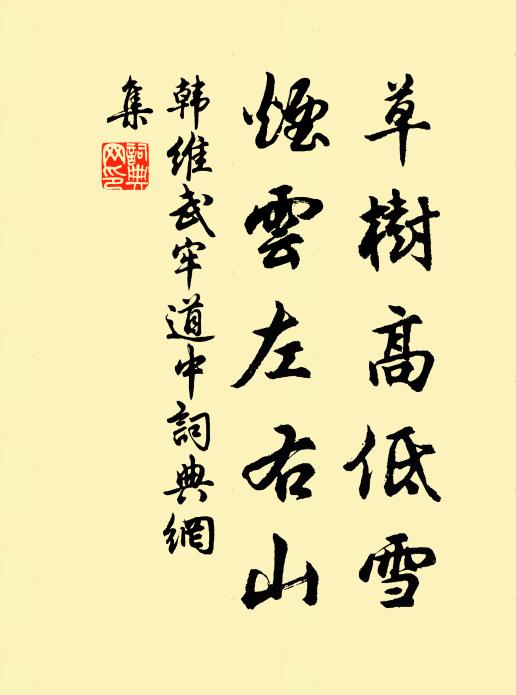 草樹高低雪
煙雲左右山
韩維武牢道中詞典網
集
詞典网印